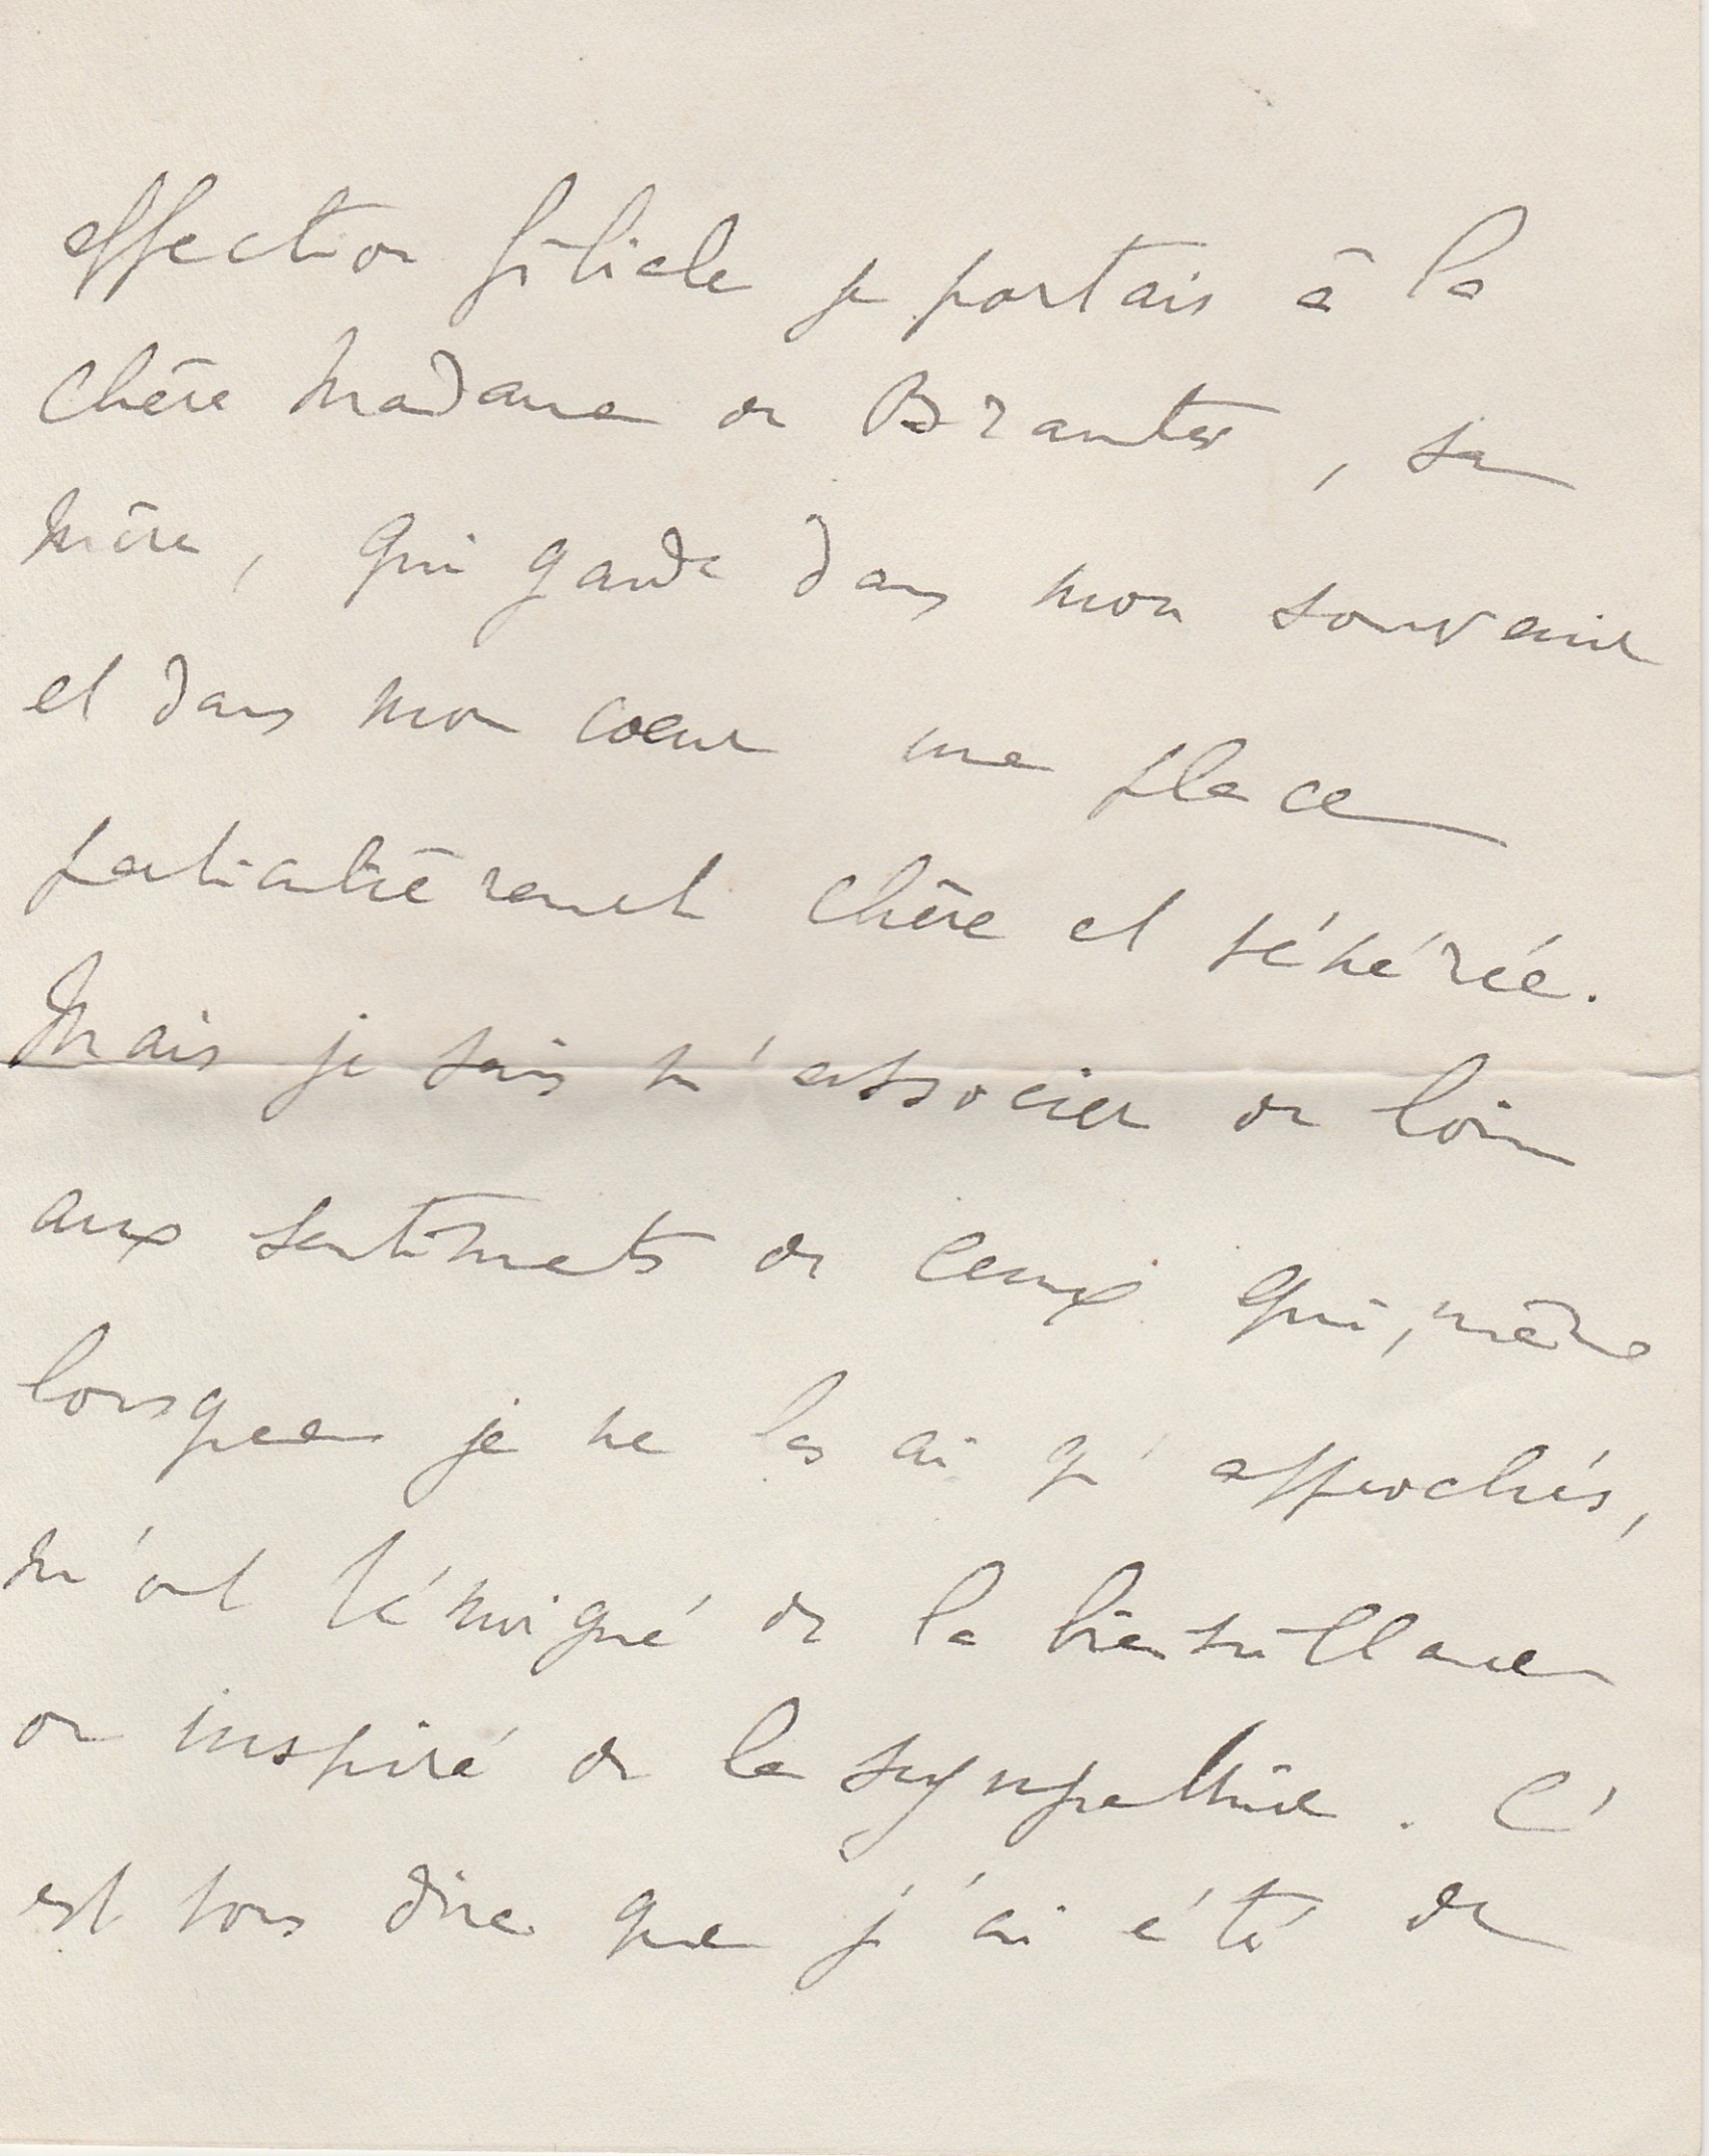 affection filiale je portais à la
chère Madame de Brantes, sa
mère, qui garde dans mon souvenir
et dans mon cœur une place
particulièrement chère et vénérée.
Mais je sais m'associer de loin
aux sentiments de ceux qui, même
lorsque je ne les ai qu'approchés,
m'ont témoigné de la bienveillance
ou inspiré de la sympathie. C'
est vous dire que j'ai été de